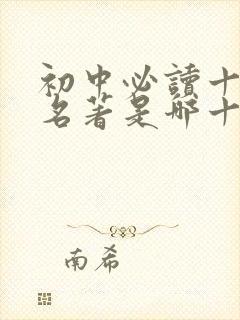 初中必讀十
名著是哪十
南希